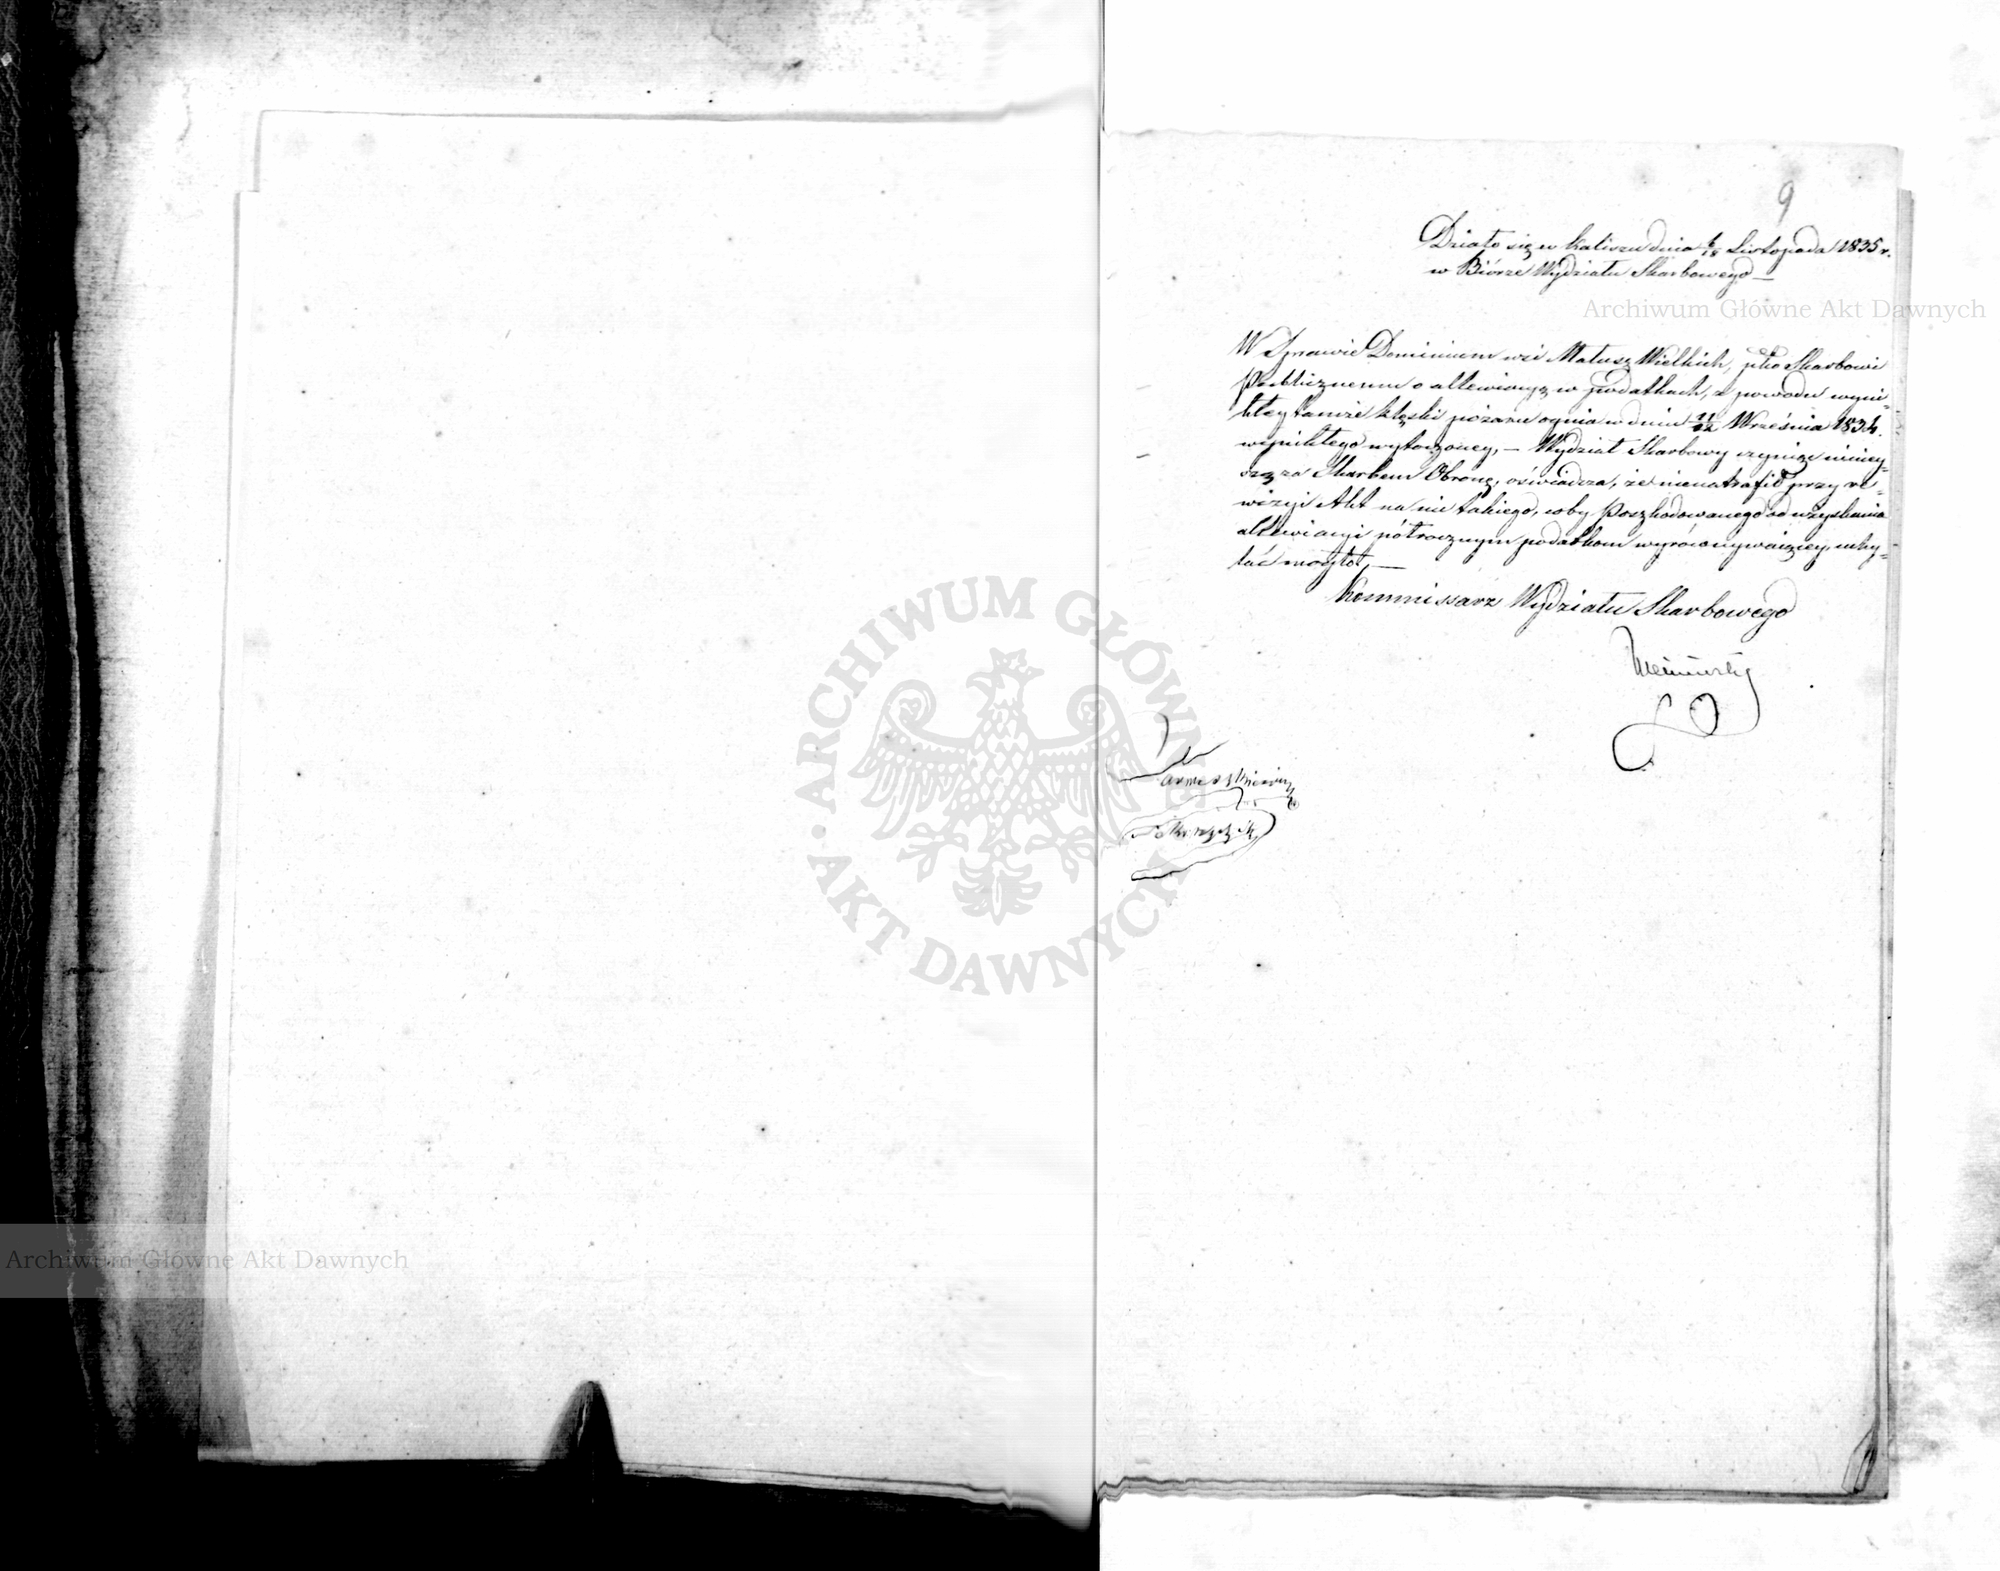 9
Działo się w Kaliszu dnia 6/18 Listopada 1835 r.
w Biórze Wydziału Skarbowego —
Archiwum Główne Akt Dawnych
W Sprawie Dominium wsi Małusz Wielkich, pko Skarbowi
Publicznemu o allewiacyą w podatkach, z powodu wyni-
kłey tamże klęski pożaru ognia w dniu Września 1834.
wynikłego wytoczoney, — Wydział Skarbowy czyniąc niniey-
szą za Skarbem Obronę, oświadcza, że nienatrafił przy re-
wizyi Akt na nic takiego, coby Poszkodowanego od uzyskania
allewiacyi półrocznym podatkom wyrównywaiącey, uchy-
lać mogło, —
Kommissarz Wydziału Skarbowego
ARCHIWUM GŁÓWNE AKT DAWNYCH
Archiwum Główne Akt Dawnych